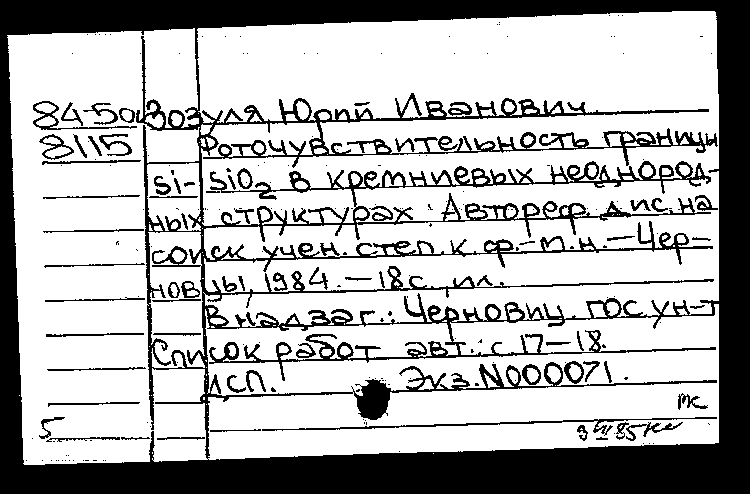 84-50 Зозуля, Юрий Иванович
8115 Фоточувствительность границы
si-siO2 в кремниевых неоднород-
ных структурах: Автореф. дис. на
соиск. учен. степ. к. ф.-м. н. — Чер-
новцы, 1984. — 18 с., ил.
В надзаг.: Черновиц. гос. ун-т
Список работ авт.: с. 17-18.
ДСП. Экз. N000071.
мс
5 85